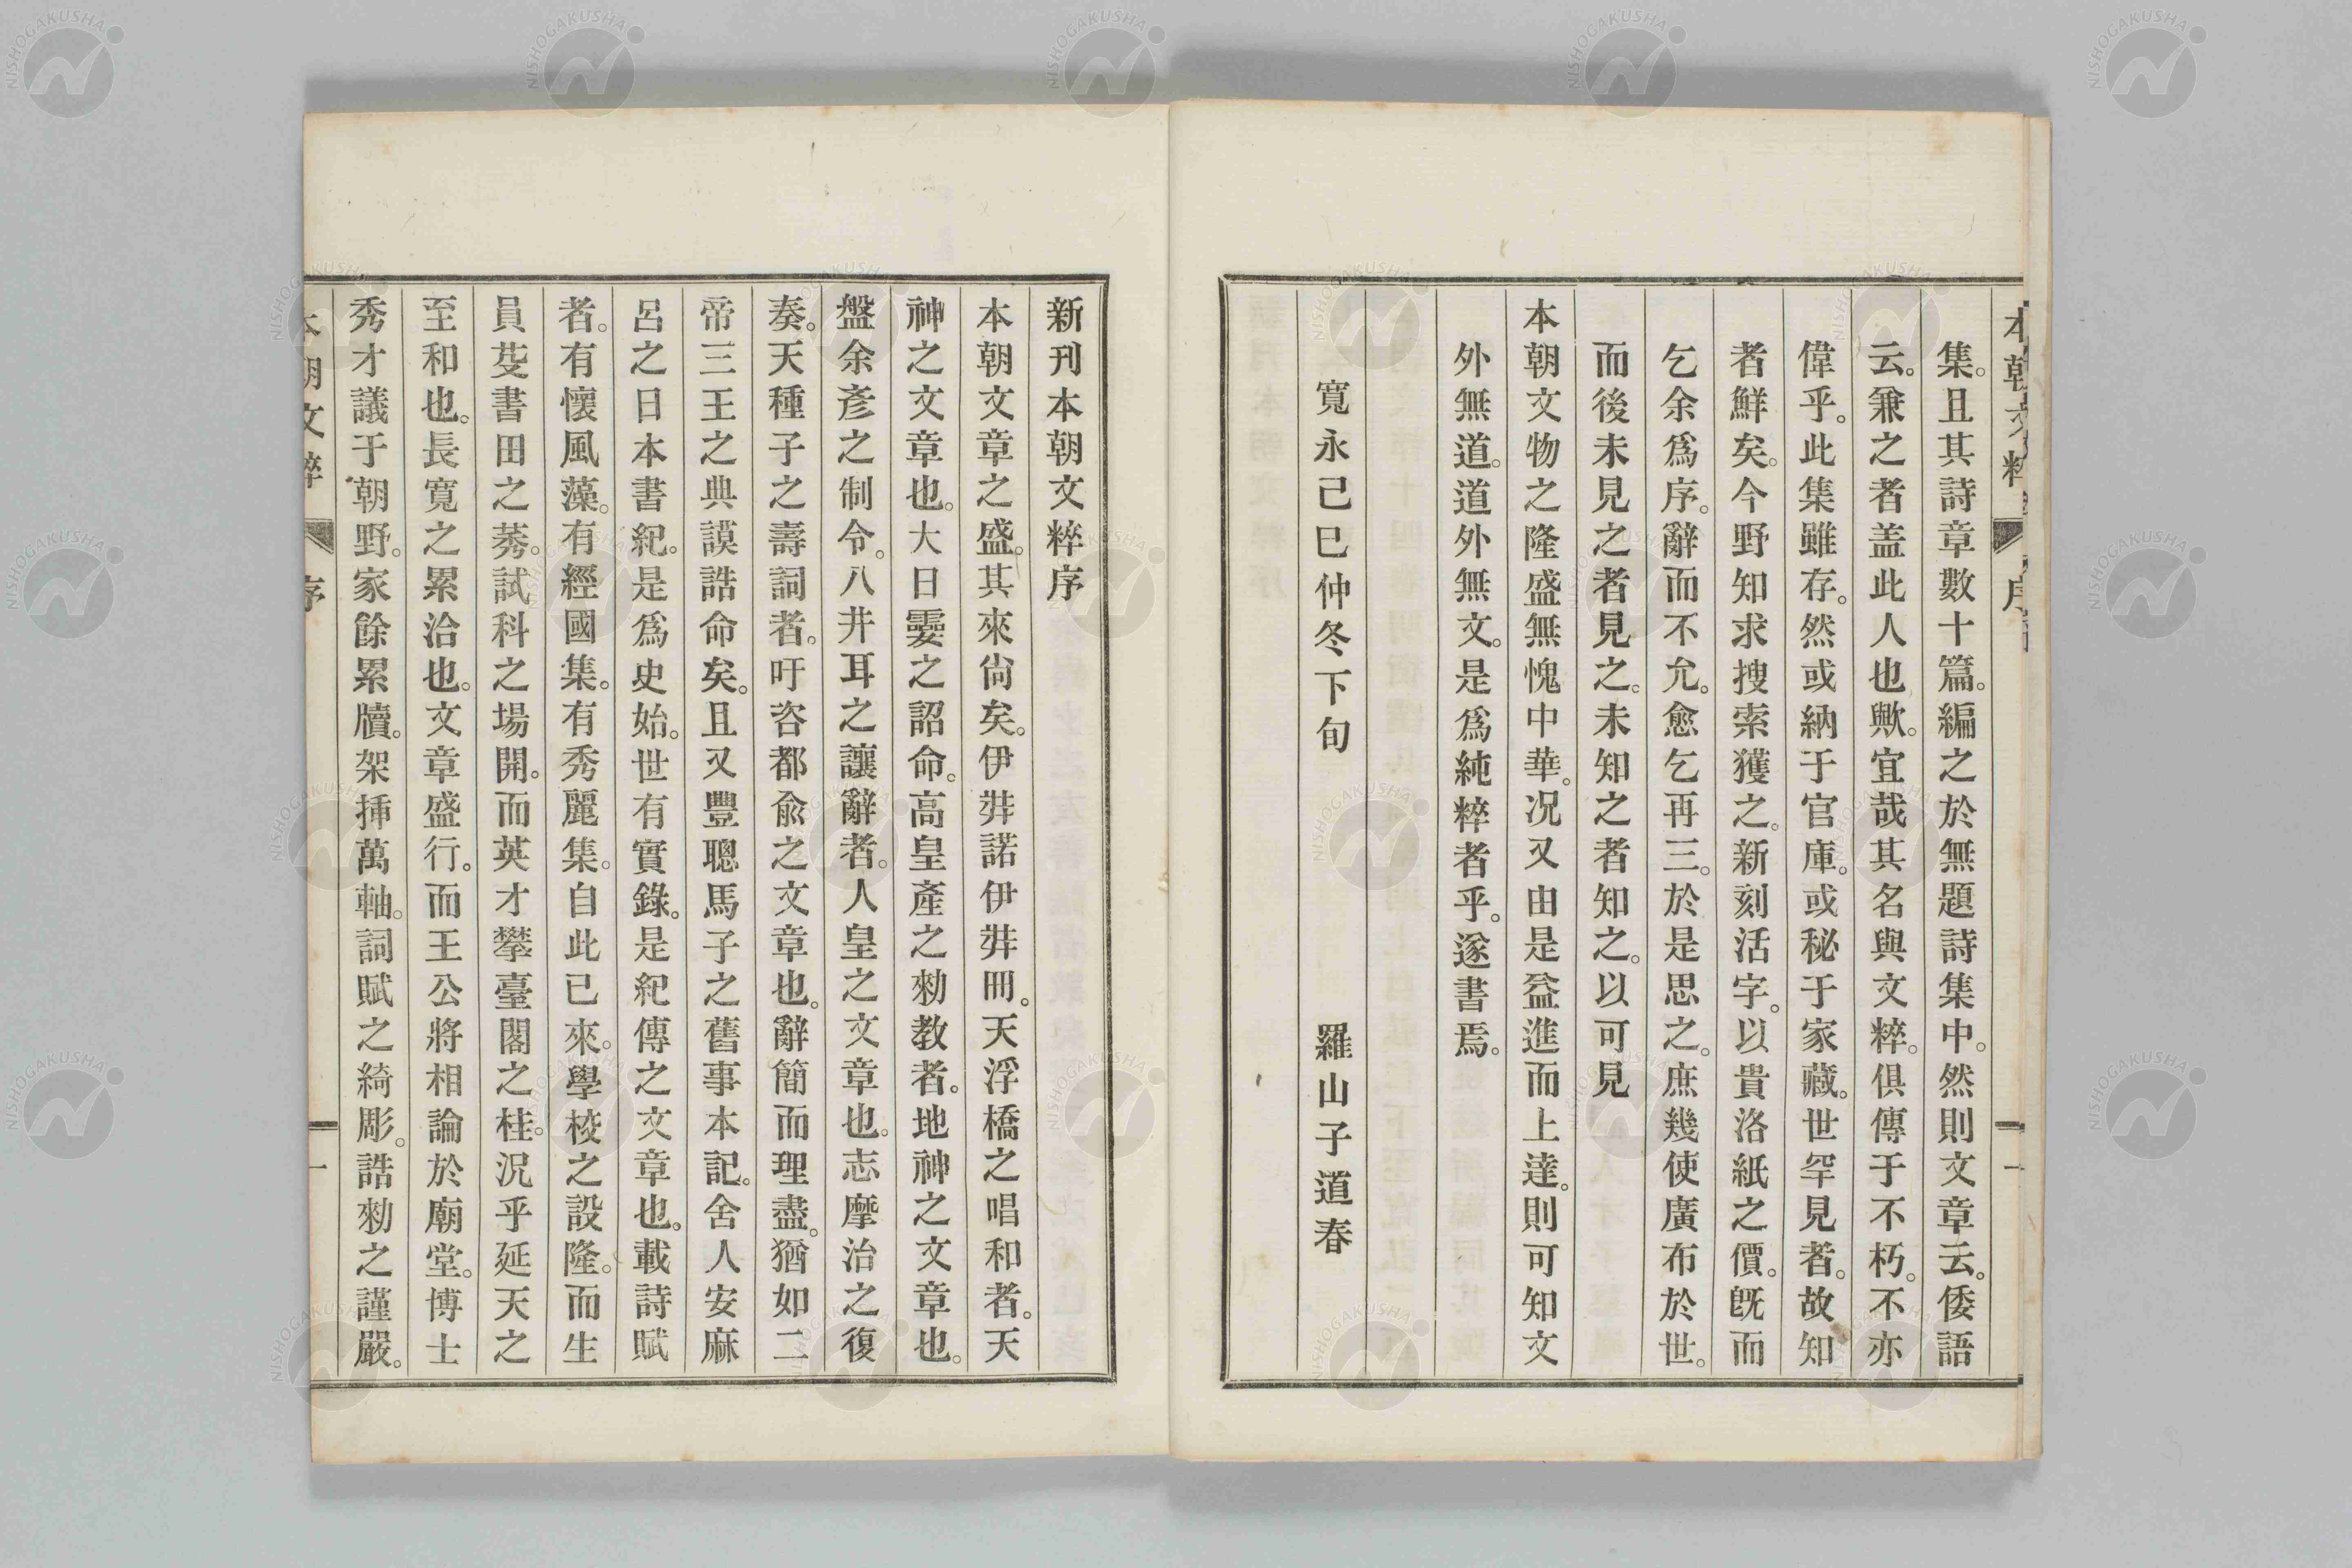 集。且其詩章數十篇。編之於無題詩集中。然則文章云。倭語
云。兼之者盖此人也歟。宜哉其名與文粹。俱傳于不朽。不亦
偉乎。此集雖存。然或納于官庫。或秘于家藏。世罕見者。故知
者鮮矣。今野知求搜索獲之。新刻活字。以貴洛紙之價。既而
乞余爲序。辭而不允。愈乞再三。於是思之。庶幾使廣布於世。
而後未見之者見之。未知之者知之。以可見
本朝文物之隆盛無愧中華。况又由是益進而上達。則可知文
外無道。道外無文。是爲純粹者乎。遂書焉。
寬永己巳仲冬下旬 羅山子道春
新刊本朝文粹序
本朝文章之盛。其來尙矣。伊弉諾伊弉冊。天浮橋之唱和者。天
神之文章也。大日孁之詔命。高皇產之勅教者。地神之文章也。
盤余彥之制令。八井耳之讓辭者。人皇之文章也。志摩治之復
奏。天種子之壽詞者。吁咨都兪之文章也。辭簡而理盡。猶如二
帝三王之典謨誥命矣。且又豐聰馬子之舊事本記。舍人安麻
呂之日本書紀。是爲史始。世有實錄。是紀傳之文章也。載詩賦
者。有懷風藻。有經國集。有秀麗集。自此已來。學校之設隆。而生
員芟書田之莠。試科之場開。而英才攀臺閣之桂。況乎延天之
至和也。長寬之累洽也。文章盛行。而王公將相論於廟堂。博士
秀才議于朝野。家餘累牘。架挿萬軸。詞賦之綺彫。誥勅之謹嚴。